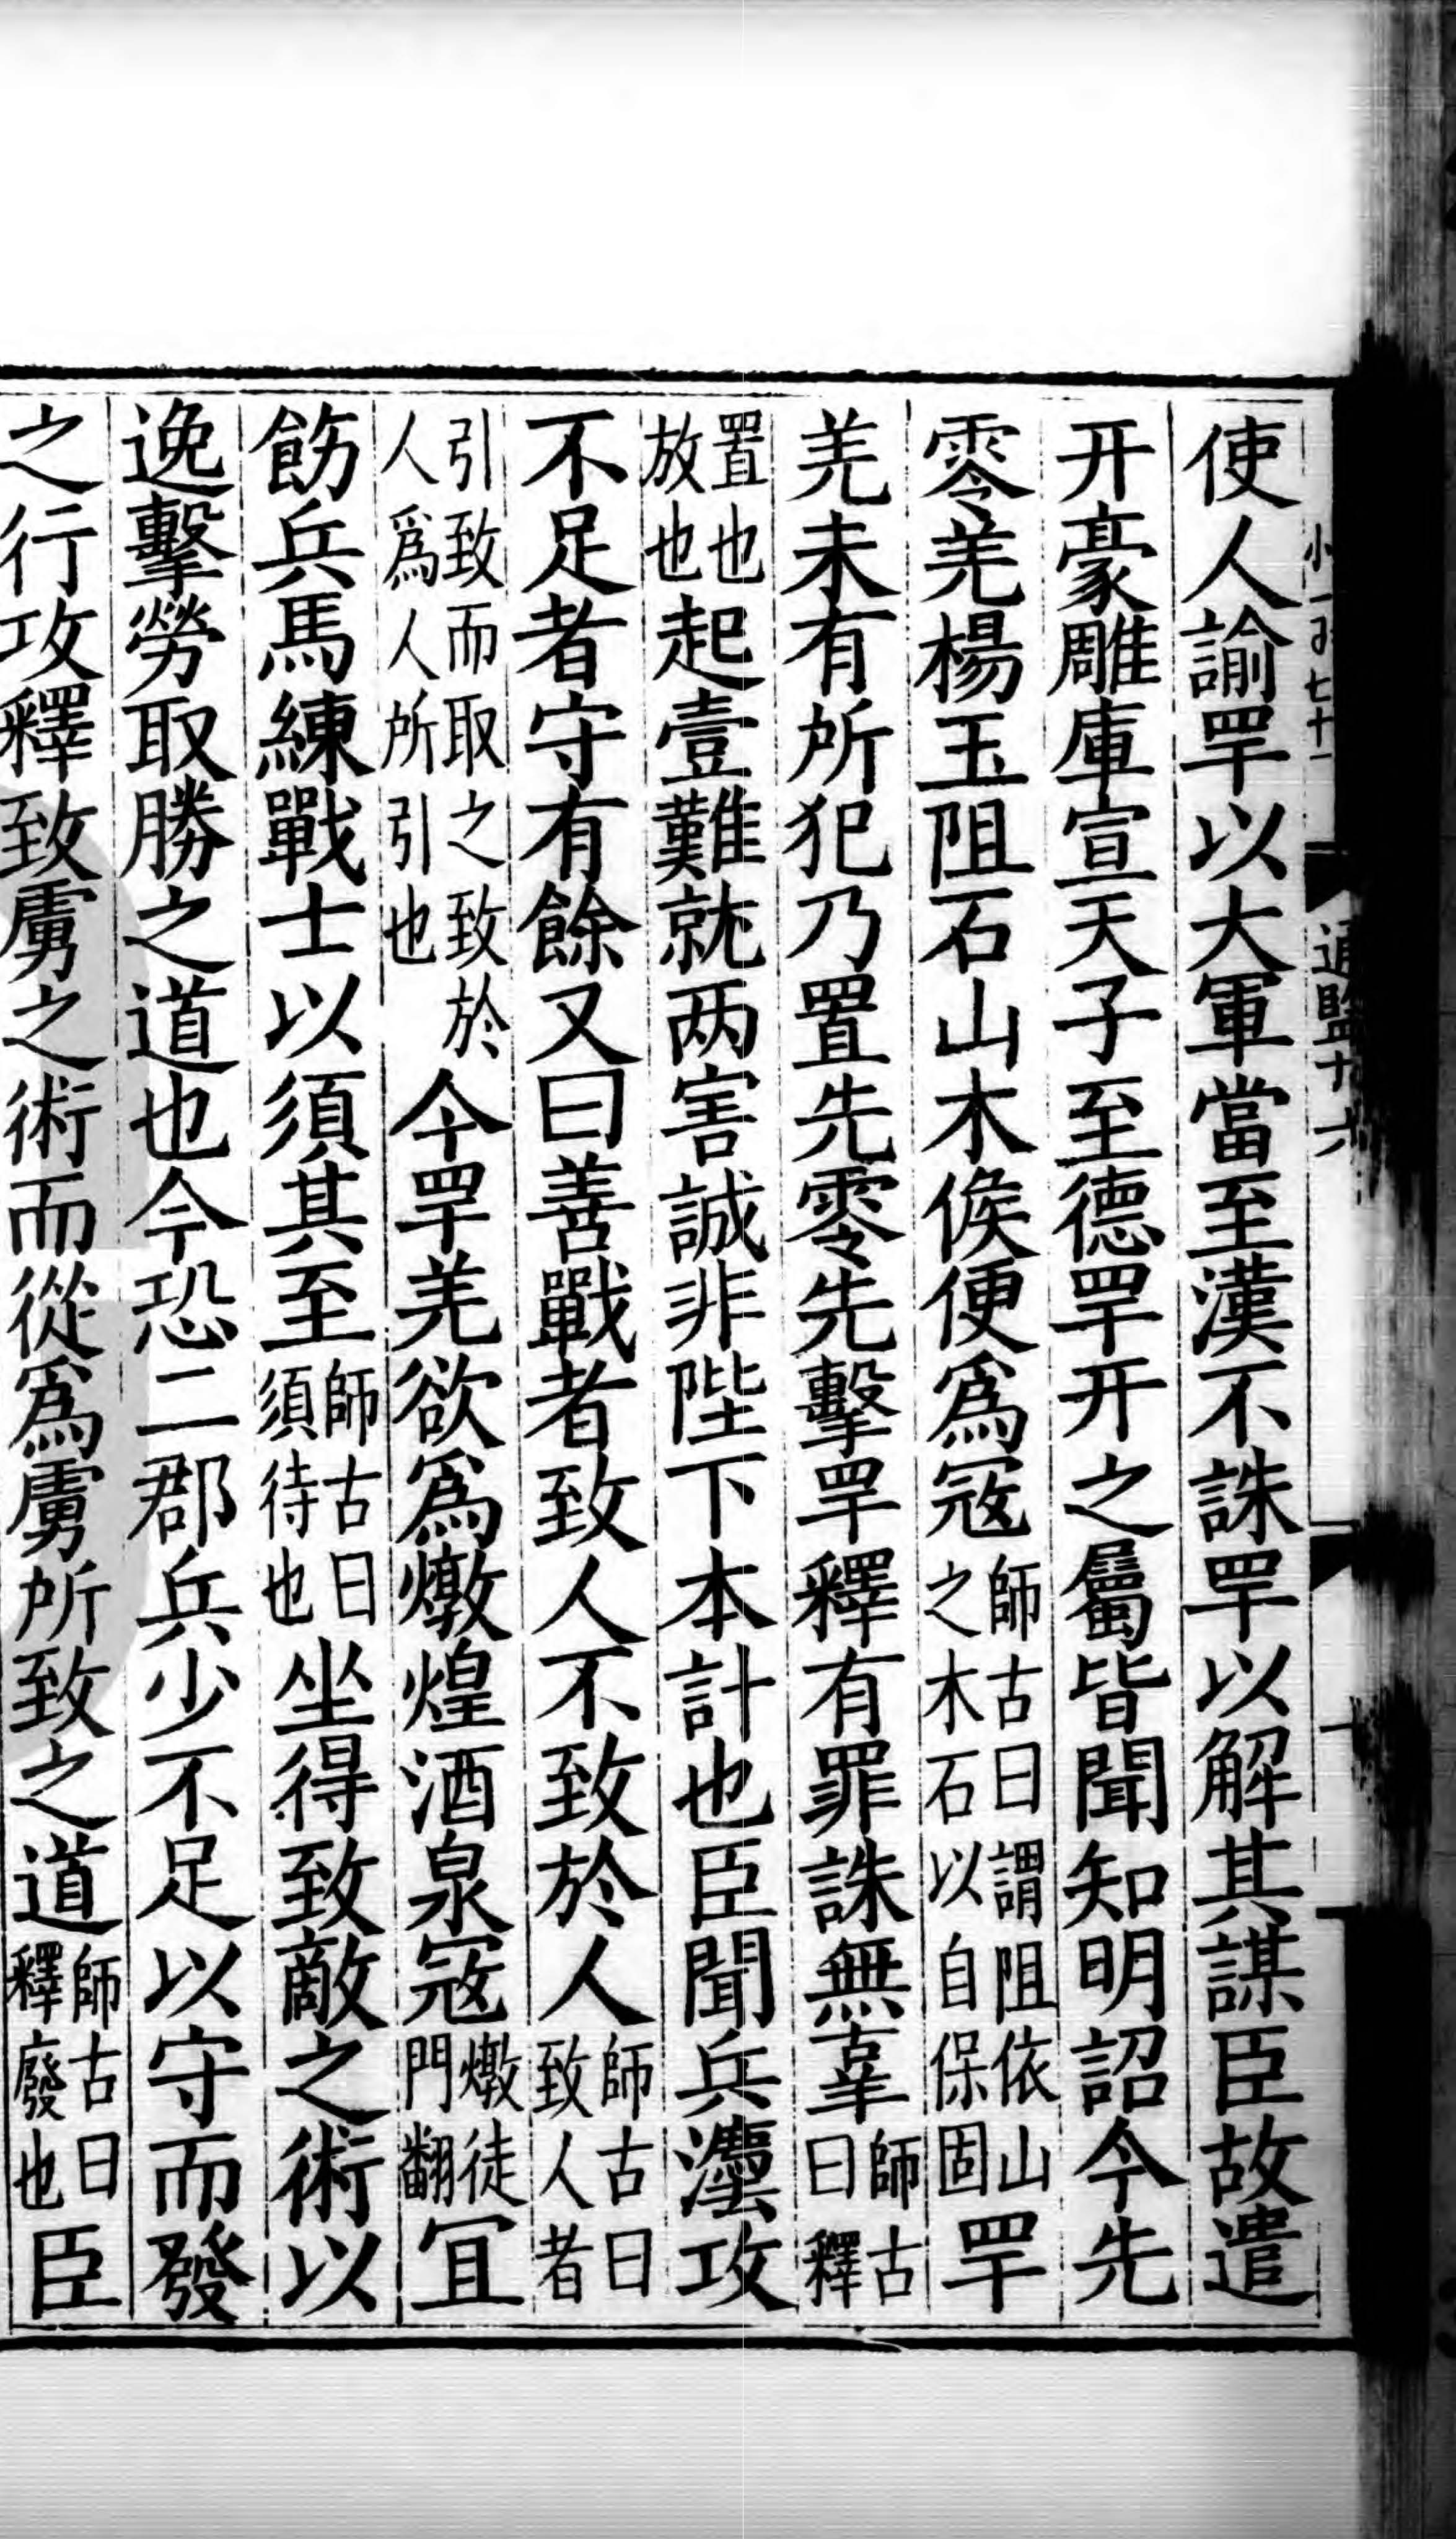 使人諭䍐以大軍當至漢不誅䍐以解其謀臣故遣
开豪雕庫宣天子至德䍐开之屬皆聞知明詔今先
零羌楊玉阻石山木候便爲宼師古曰謂阻依山之木石以自保固䍐
羌未有所犯乃置先零先擊䍐釋有罪誅無辜師古曰釋
置也放也起壹難就两害誠非陛下本計也臣聞兵灋攻
不足者守有餘又曰善戰者致人不致於人師古曰致人者
引致而取之致於人爲人所引也今䍐羌欲爲燉煌酒泉宼燉徒門翻宜
飭兵馬練戰士以須其至師古曰須待也坐得致敵之術以
逸擊勞取勝之道也今恐二郡兵少不足以守而發
之行攻釋致虜之術而從爲虜所致之道師古曰釋廢也臣